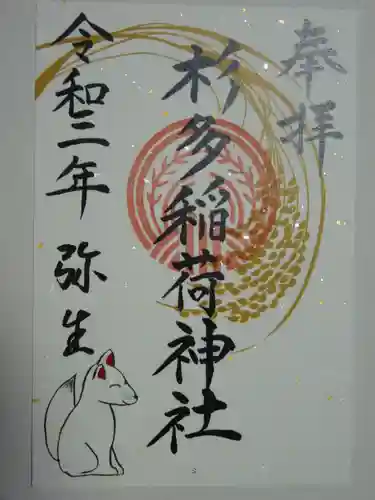 奉拝
杉多稲荷神社
令和三年 弥生